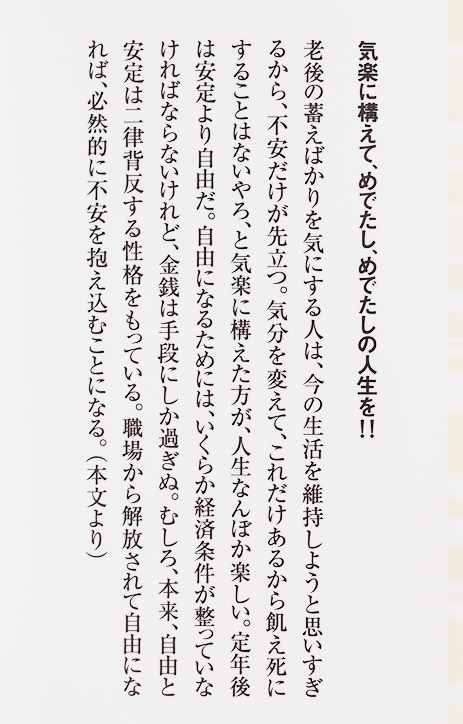 気楽に構えて、めでたし、めでたしの人生を!!
老後の蓄えばかりを気にする人は、今の生活を維持しようと思いすぎ
るから、不安だけが先立つ。気分を変えて、これだけあるから飢え死に
することはないやろ、と気楽に構えた方が、人生なんぼか楽しい。定年後
は安定より自由だ。自由になるためには、いくらか経済条件が整っていな
ければならないけれど、金銭は手段にしか過ぎぬ。むしろ、本来、自由と
安定は二律背反する性格をもっている。職場から解放されて自由にな
れば、必然的に不安を抱え込むことになる。(本文より)